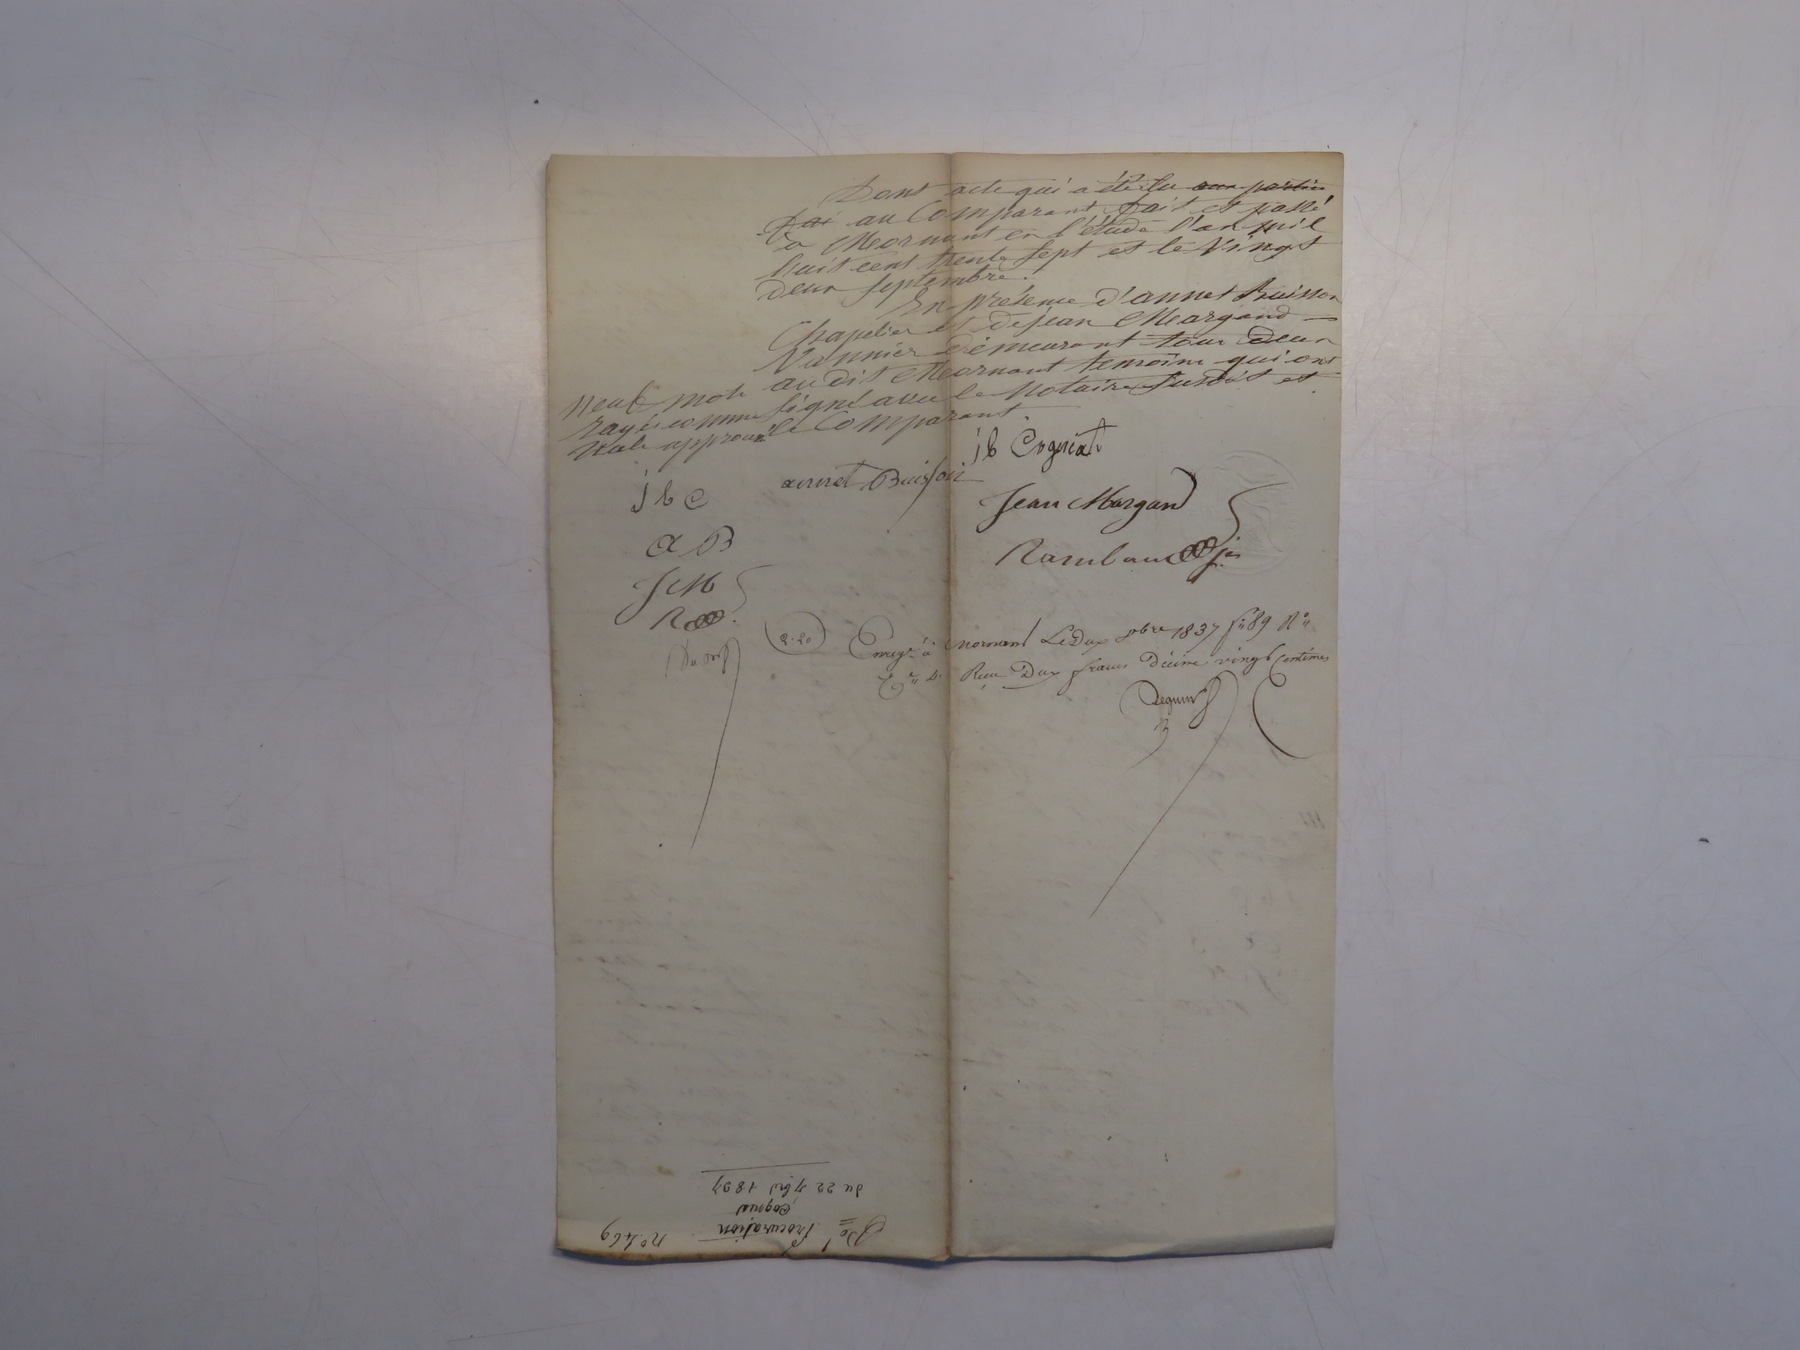 Dont acte qui a été lu aux parties
fai au Comparant fait et passé
à Mornant en l'étude l'an mil
huit cent trente sept et le vingt
deux septembre.
En présence d'annet Buisson
Chapelier et de jean Margand
Vannier demeurant tous deux
audit Mornant temoins qui ont
signé avec le Notaire susdit et
le Comparant.
neuf mots
rayés comme
nuls approuvé
jb Cogniat
annet Buisson
Jean Margand
Rambau
j b c
a B
J M
R
2.20
Enregé à Mornant Le Deux 8bre 1837 f° 89 R°
Reçu Deux francs Décime vingt centimes
N° 469
Procuration
Cognat
du 22 7bre 1837